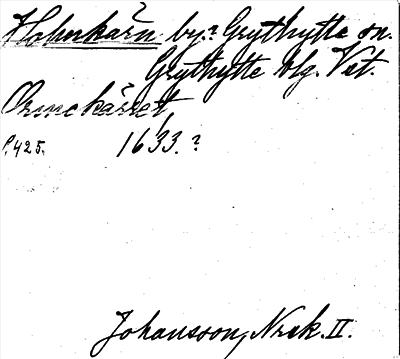 Holmkärn by? Grythytte sn.
Grythytte blg. Vst.
Ormekärret,
P. 425. 1633.?
Johansson, Nrck. II.